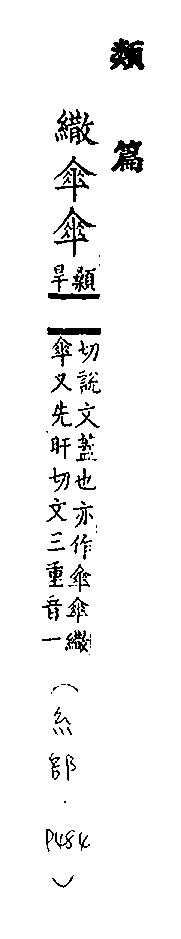 類篇
繖傘傘
顙
旱
切說文蓋也亦作傘傘繖
傘又先旰切文三重音一
(糸部.P484)